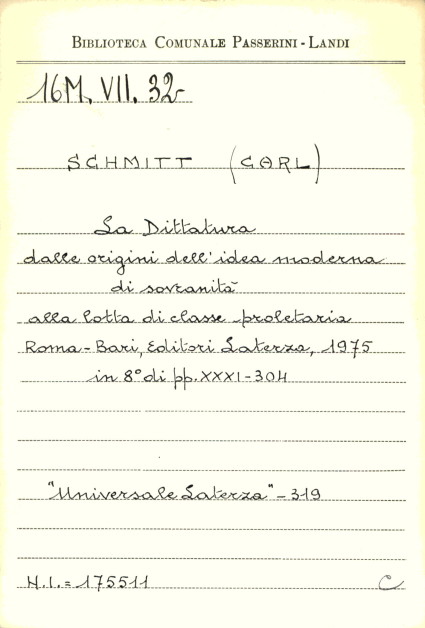 BIBLIOTECA COMUNALE PASSERINI - LANDI
16M. VII. 32
SCHMITT (CARL)
La Dittatura
dalle origini dell'idea moderna
di sovranità
alla lotta di classe proletaria
Roma-Bari, Editori Laterza, 1975
in 8° di pp. XXXI-304
"Universale Laterza" - 319
N.I. = 175511
C